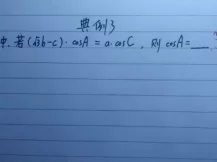 典例3
中，若(√3b-c)·cosA=a·cosC，则cosA=___